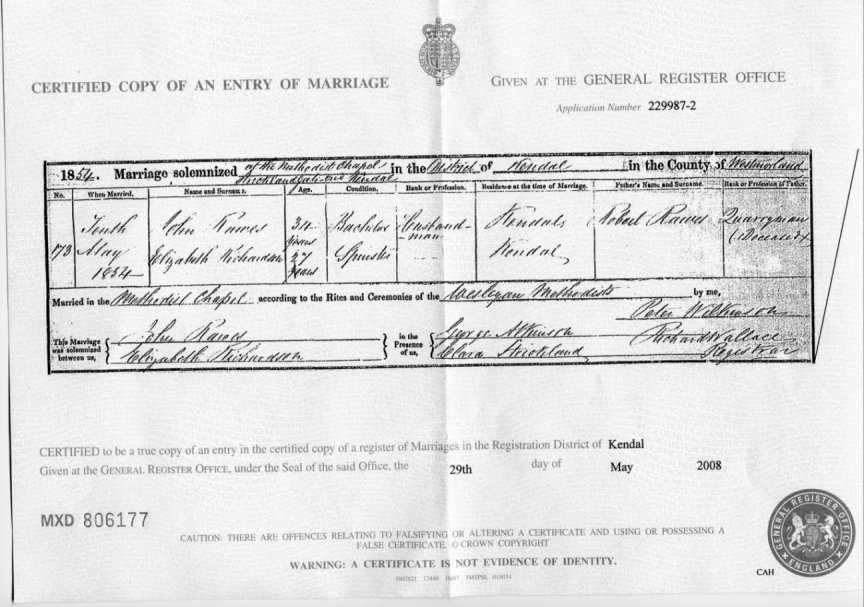 CERTIFIED COPY OF AN ENTRY OF MARRIAGE
GIVEN AT THE GENERAL REGISTER OFFICE
Application Number 229987-2
1854. Marriage solemnized at the Methodist Chapel in the District of Kendal in the County of Westmorland
Stricklandgate Kendal
No. When Married. Name and Surname. Age. Condition. Rank or Profession. Residence at the time of Marriage. Father's Name and Surname. Rank or Profession of Father.
173
Tenth John Rawes 34 years Bachelor Husbandman Kendal Robert Rawes Quarryman (Deceased)
May Elizabeth Richardson 27 years Spinster Kendal
1854
Married in the Methodist Chapel according to the Rites and Ceremonies of the Wesleyan Methodists by me,
Peter Wilkinson
This Marriage was solemnized between us, John Rawes in the Presence of us, George Atkinson Richard Wallace
Elizabeth Richardson Clara Strickland Registrar
CERTIFIED to be a true copy of an entry in the certified copy of a register of Marriages in the Registration District of Kendal
Given at the GENERAL REGISTER OFFICE, under the Seal of the said Office, the 29th day of May 2008
MXD 806177
CAUTION: THERE ARE OFFENCES RELATING TO FALSIFYING OR ALTERING A CERTIFICATE AND USING OR POSSESSING A
FALSE CERTIFICATE. © CROWN COPYRIGHT
WARNING: A CERTIFICATE IS NOT EVIDENCE OF IDENTITY.
GENERAL REGISTER OFFICE
ENGLAND
CAH